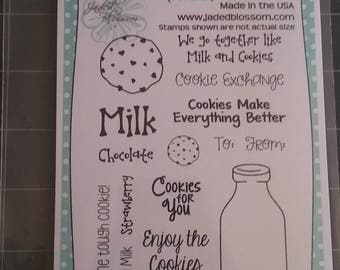 Jaded
Blossom
Made in the USA
www.jadedblossom.com
Stamps shown are not actual size
We go together like
Milk and Cookies
Cookie Exchange
Milk
Cookies Make
Everything Better
Chocolate
To: From:
tough cookie!
Strawberry
Milk
Cookies
for
You
Enjoy the
Cookies